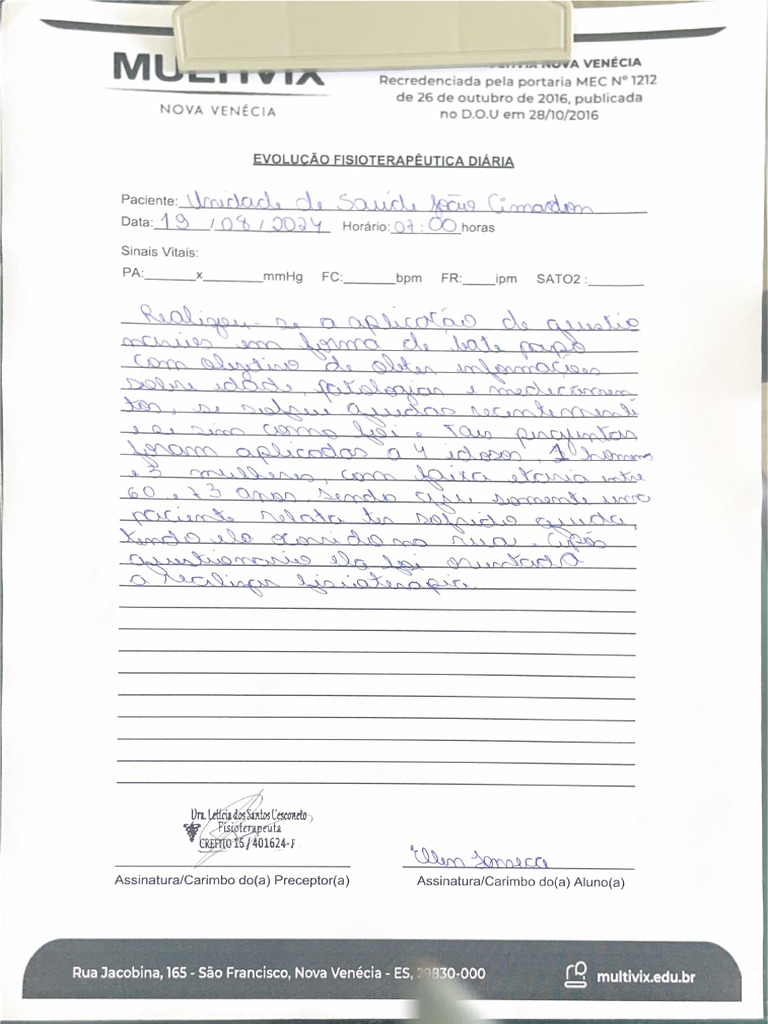 MULTIVIX
NOVA VENÉCIA
MULTIVIX NOVA VENÉCIA
Recredenciada pela portaria MEC Nº 1212
de 26 de outubro de 2016, publicada
no D.O.U em 28/10/2016
EVOLUÇÃO FISIOTERAPÊUTICA DIÁRIA
Paciente: Unidade de Saúde João
Data: 19 / 08 / 2024 Horário: 07:00 horas
Sinais Vitais:
PA:_______x_________mmHg FC:________bpm FR:_____ipm SATO2 :________
Realizou-se a aplicação de questio
narios em forma de bate papo
com objetivo de obter informações
sobre idade, patologias e medicamen
tos, se sofreu quedas recentemente
e se sim como foi. Tais perguntas
foram aplicadas a 4 idosos, 1 homem
e 3 mulheres, com faixa etaria entre
60 e 73 anos, sendo que somente uma
paciente relata ter sofrido queda,
tendo ela ocorrido na rua. Após
questionario ela foi orientada
a realizar fisioterapia.
Dra. Letícia dos Santos Cesconeto
Fisioterapeuta
CREFITO 15 / 401624-F
Ellen Fonseca
Assinatura/Carimbo do(a) Preceptor(a) Assinatura/Carimbo do(a) Aluno(a)
Rua Jacobina, 165 - São Francisco, Nova Venécia - ES, 29830-000
multivix.edu.br